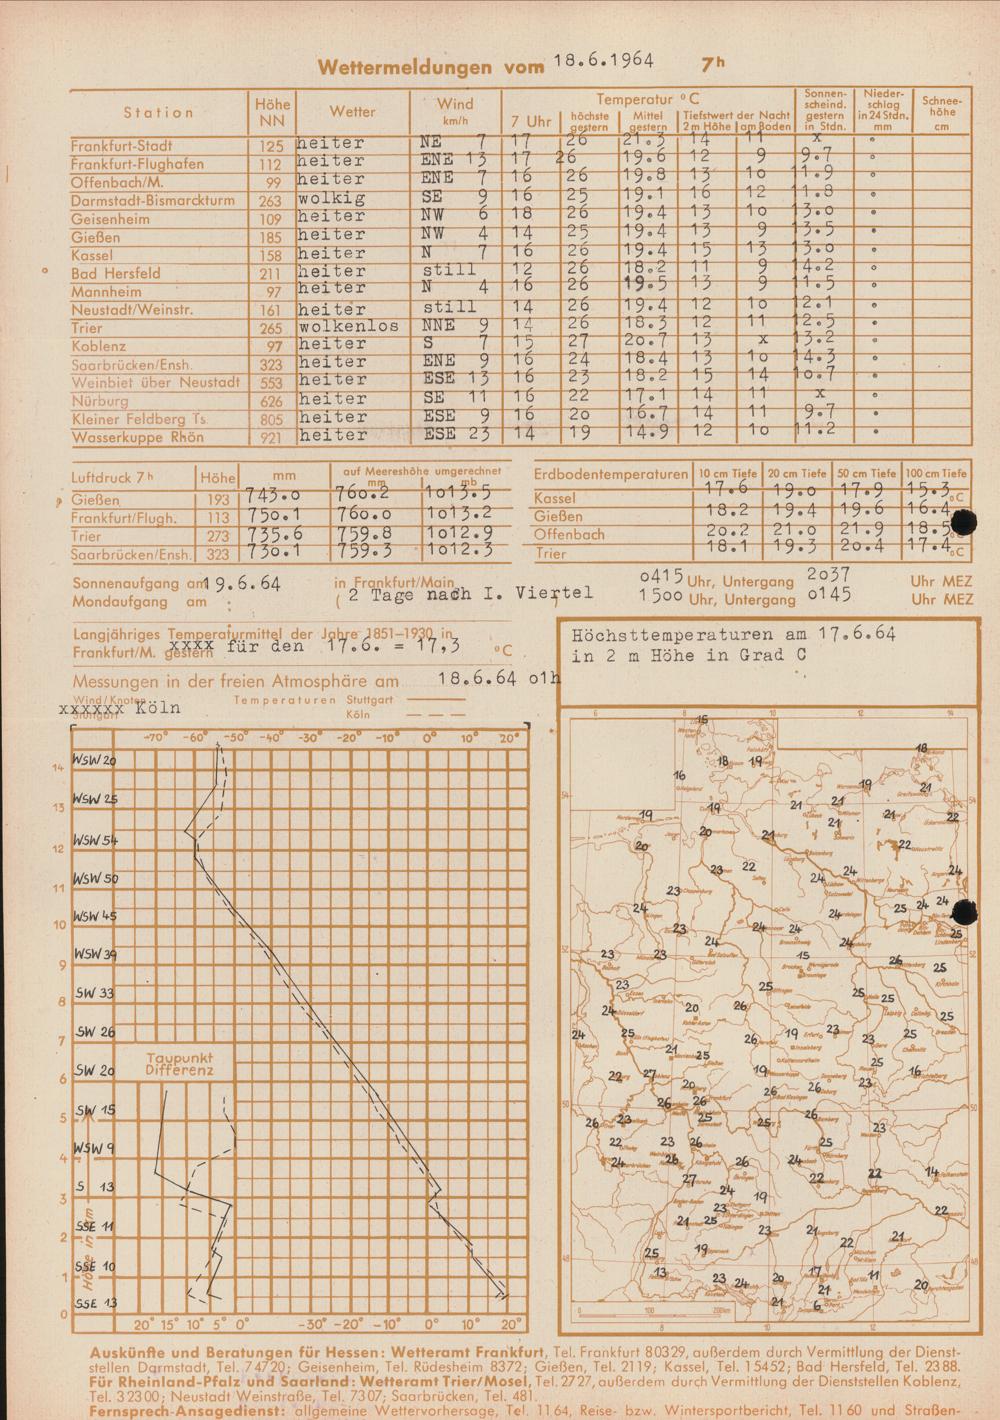 Wettermeldungen vom 18.6.1964 7h
Station Höhe NN Wetter Wind km/h Temperatur °C 7 Uhr höchste gestern Mittel gestern Tiefstwert der Nacht 2 m Höhe am Boden Sonnen-scheind. gestern in Stdn. Nieder-schlag in 24 Stdn. mm Schnee-höhe cm
Frankfurt-Stadt 125 heiter NE 7 17 26 21.3 14 11 x °
Frankfurt-Flughafen 112 heiter ENE 13 17 26 19.6 12 9 9.7 °
Offenbach/M. 99 heiter ENE 7 16 26 19.8 13 10 11.9 °
Darmstadt-Bismarckturm 263 wolkig SE 9 16 25 19.1 16 12 11.8 °
Geisenheim 109 heiter NW 6 18 26 19.4 13 10 13.0 °
Gießen 185 heiter NW 4 14 25 19.4 13 9 13.5 °
Kassel 158 heiter N 7 16 26 19.4 15 13 13.0 °
Bad Hersfeld 211 heiter still 12 26 18.2 11 9 14.2 °
Mannheim 97 heiter N 4 16 26 19.5 13 9 11.5 °
Neustadt/Weinstr. 161 heiter still 14 26 19.4 12 10 12.1 °
Trier 265 wolkenlos NNE 9 14 26 18.3 12 11 12.5 °
Koblenz 97 heiter S 7 15 27 20.7 13 x 13.2 °
Saarbrücken/Ensh. 323 heiter ENE 9 16 24 18.4 13 10 14.3 °
Weinbiet über Neustadt 553 heiter ESE 13 16 23 18.2 15 14 10.7 °
Nürburg 626 heiter SE 11 16 22 17.1 14 11 x °
Kleiner Feldberg Ts. 805 heiter ESE 9 16 20 16.7 14 11 9.7 °
Wasserkuppe Rhön 921 heiter ESE 23 14 19 14.9 12 10 11.2 °
Luftdruck 7h Höhe mm auf Meereshöhe umgerechnet mm mb
Gießen 193 743.0 760.2 1013.5
Frankfurt/Flugh. 113 750.1 760.0 1013.2
Trier 273 735.6 759.8 1012.9
Saarbrücken/Ensh. 323 730.1 759.3 1012.3
Erdbodentemperaturen 10 cm Tiefe 20 cm Tiefe 50 cm Tiefe 100 cm Tiefe
Kassel 17.6 19.0 17.9 15.3 °C
Gießen 18.2 19.4 19.6 16.4
Offenbach 20.2 21.0 21.9 18.5
Trier 18.1 19.3 20.4 17.4 °C
Sonnenaufgang am 19.6.64 in Frankfurt/Main 0415 Uhr, Untergang 2037 Uhr MEZ
Mondaufgang am : ( 2 Tage nach I. Viertel ) 1500 Uhr, Untergang 0145 Uhr MEZ
Langjähriges Temperaturmittel der Jahre 1851–1930 in
Frankfurt/M. gestern xxxx für den 17.6. = 17,3 °C
Messungen in der freien Atmosphäre am 18.6.64 01h
Wind/Knoten Temperaturen Stuttgart
xxxxxx Köln Stuttgart Köln
-70° -60° -50° -40° -30° -20° -10° 0° 10° 20°
WSW 20
14
WSW 25
13
WSW 54
12
WSW 50
11
WSW 45
10
WSW 39
9
SW 33
8
SW 26
7
Taupunkt
Differenz
SW 20
6
SW 15
5
WSW 9
4
S 13
3
SSE 11
2
SSE 10
1
SSE 13
0
Höhe in km
20° 15° 10° 5° 0° -30° -20° -10° 0° 10° 20°
Höchsttemperaturen am 17.6.64
in 2 m Höhe in Grad C
6 8 10 12 14
15
18
18 19
16 19 21
19 19 21 21 21 22
20 20 21 21 22
23 22 24 24 24
23 24 25 24 24
24 23 24 24 24 25
23 23 24 15 26 25
23 25 25 25
24 20 26 25
24 25 26 19 23 23 25
21 25 25
22 27 20 19 26 26 23 16
26 26 25 25 26
26 23 23
22 23 26 25
24 26 26 24 22 22 14
27 24 19
21 23 25 23 21 22 21 22
25 19
13 23 24 20 17 21 11 20
21 6
0 100 200km
Auskünfte und Beratungen für Hessen: Wetteramt Frankfurt, Tel. Frankfurt 80329, außerdem durch Vermittlung der Dienst-
stellen Darmstadt, Tel. 74720; Geisenheim, Tel. Rüdesheim 8372; Gießen, Tel. 2119; Kassel, Tel. 15452; Bad Hersfeld, Tel. 2388.
Für Rheinland-Pfalz und Saarland: Wetteramt Trier/Mosel, Tel. 2727, außerdem durch Vermittlung der Dienststellen Koblenz,
Tel. 32300; Neustadt Weinstraße, Tel. 7307; Saarbrücken, Tel. 481.
Fernsprech-Ansagedienst: allgemeine Wettervorhersage, Tel. 1164, Reise- bzw. Wintersportbericht, Tel. 1160 und Straßen-